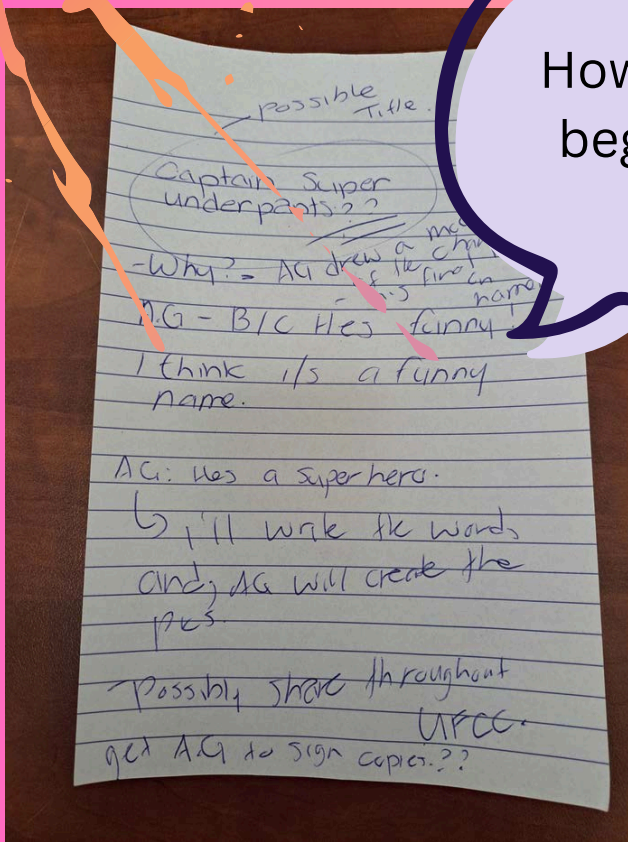 How
beg
possible
Title.
Captain Super
underpants??
- Why? - AG drew a
the
his fire
name
A.G - B/C Hes funny!
I think i/s a funny
name.
AG: Hes a superhero.
I'll write the words
and, AG will create the
pics.
- Possibly share throughout
UFCC.
get A.G to sign copies.??